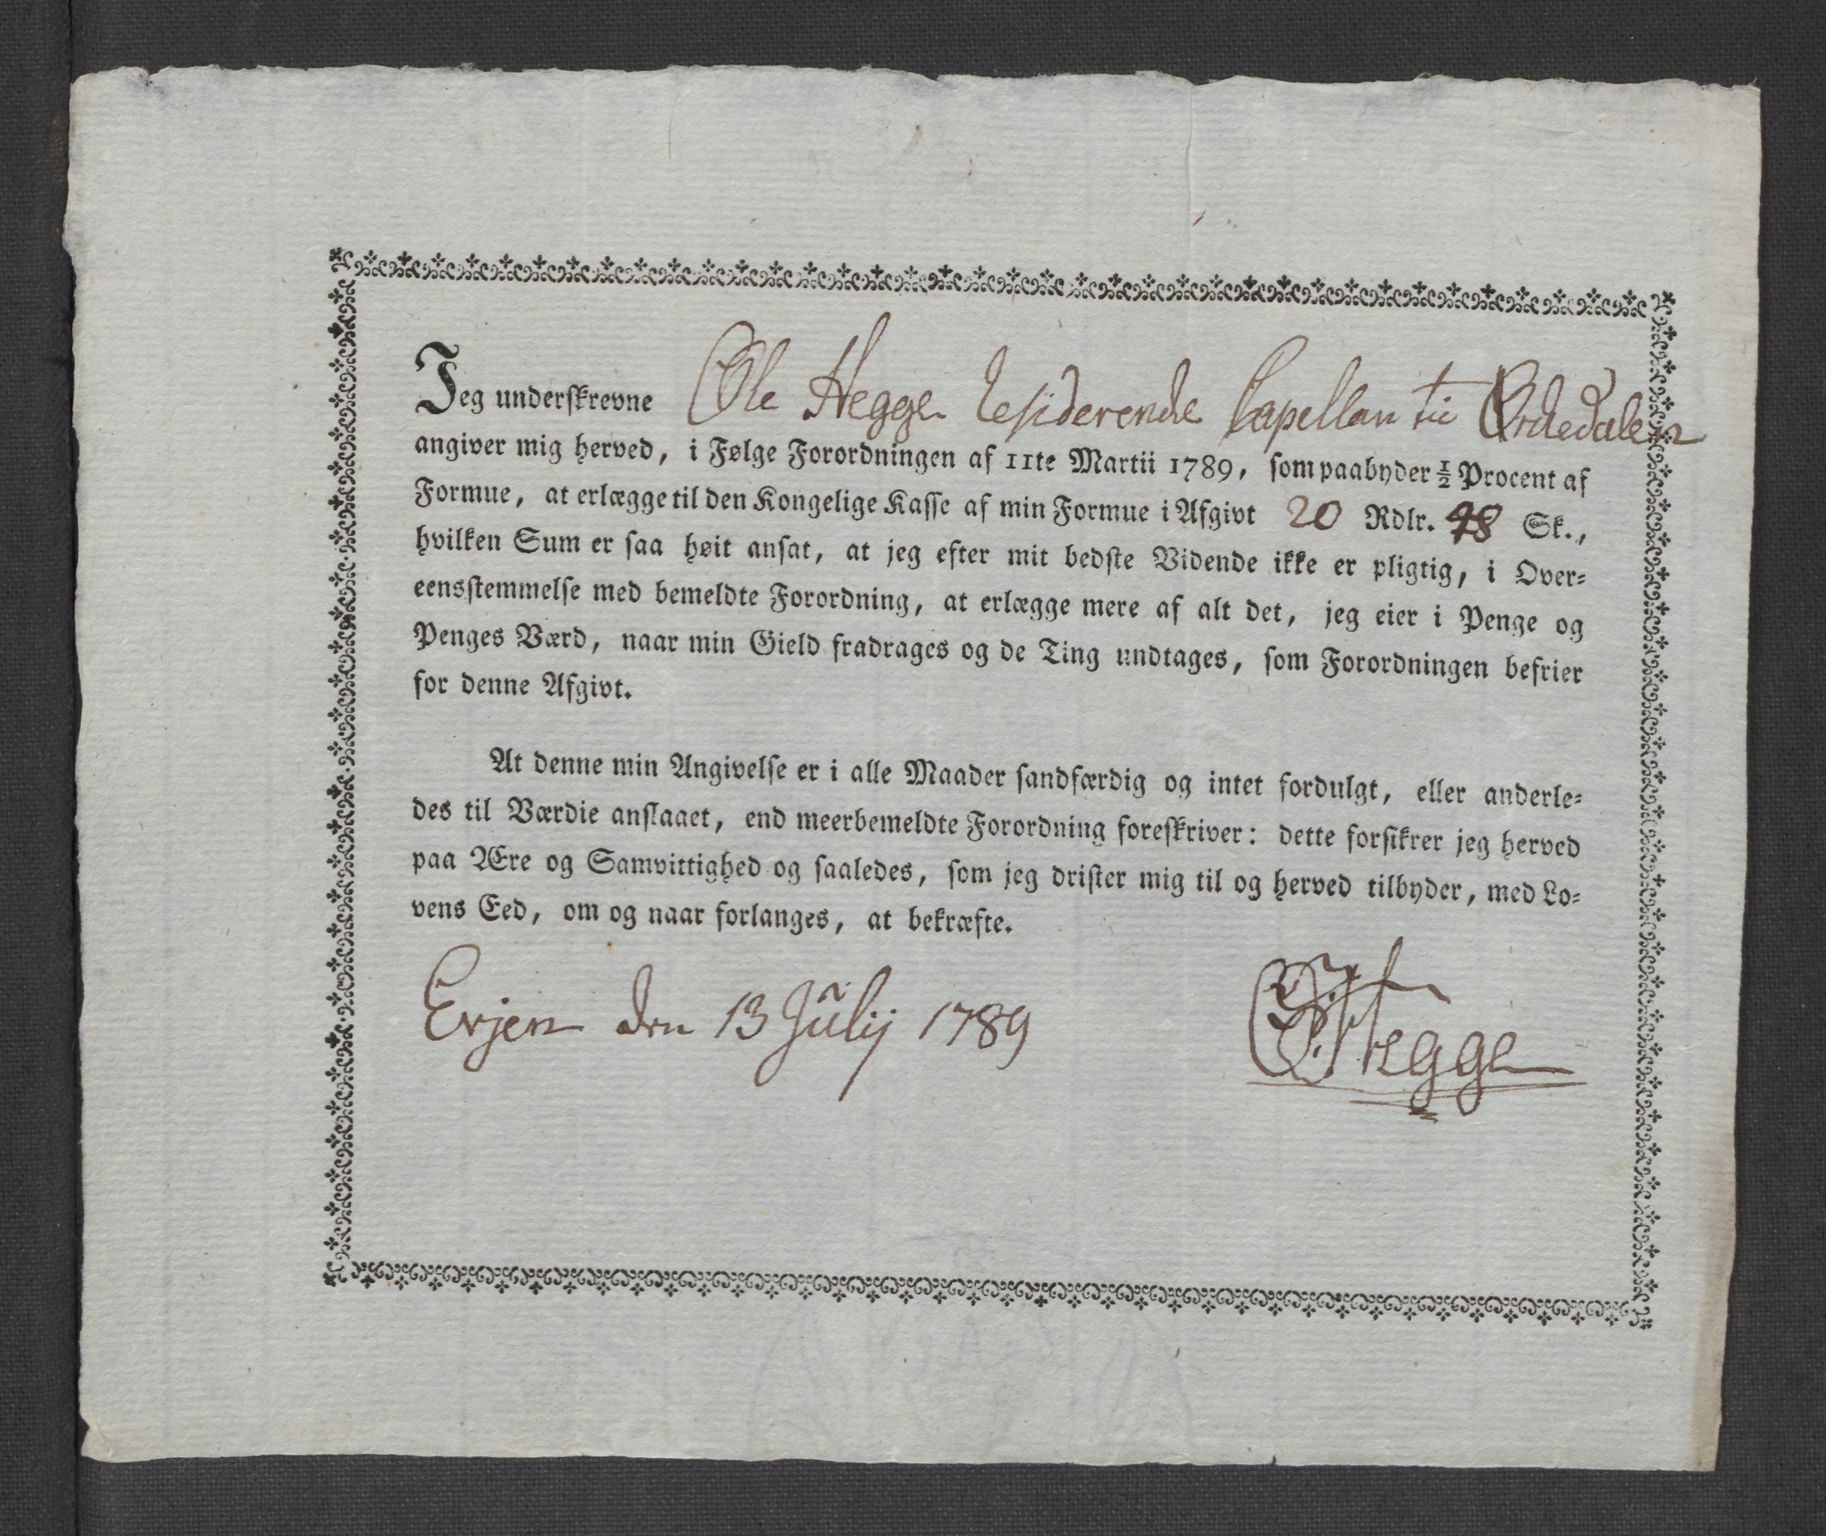 Jeg underskrevne Ole Hegge residerende Capellan til Ørkedalen
angiver mig herved, i Følge Forordningen af 11te Martii 1789, som paabyder ½ Procent af
Formue, at erlægge til den Kongelige Kasse af min Formue i Afgivt 20 Rdlr. 48 Sk.,
hvilken Sum er saa høit ansat, at jeg efter mit bedste Vidende ikke er pligtig, i Over-
eensstemmelse med bemeldte Forordning, at erlægge mere af alt det, jeg eier i Penge og
Penges Værd, naar min Gield fradrages og de Ting undtages, som Forordningen befrier
for denne Afgivt.
At denne min Angivelse er i alle Maader sandfærdig og intet fordulgt, eller anderle-
des til Værdie anslaaet, end meerbemeldte Forordning foreskriver: dette forsikrer jeg herved
paa Ære og Samvittighed og saaledes, som jeg drister mig til og herved tilbyder, med Lo-
vens Eed, om og naar forlanges, at bekræfte.
Evjen den 13 Julij 1789
O: Hegge